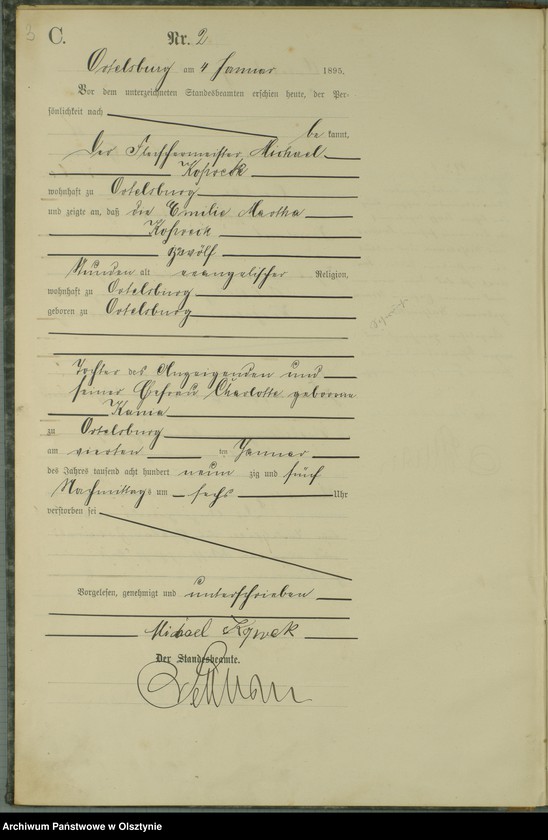 3
C.
Nr. 2
Ortelsburg am 4 Januar 1895.
Vor dem unterzeichneten Standesbeamten erschien heute, der Per-
sönlichkeit nach
be kannt,
der Fleischermeister Michael
wohnhaft zu Ortelsburg
und zeigte an, daß die Emilie Martha
zwölf
Stunden alt evangelischer Religion,
wohnhaft zu Ortelsburg
geboren zu Ortelsburg
Tochter des Anzeigenden und
seiner Ehefrau Charlotte geborene
Kania
zu Ortelsburg
am vierten ten Januar
des Jahres tausend acht hundert neun zig und fünf
Nachmittags um sechs Uhr
verstorben sei
Vorgelesen, genehmigt und unterschrieben
Michael
Der Standesbeamte.
Archiwum Państwowe w Olsztynie